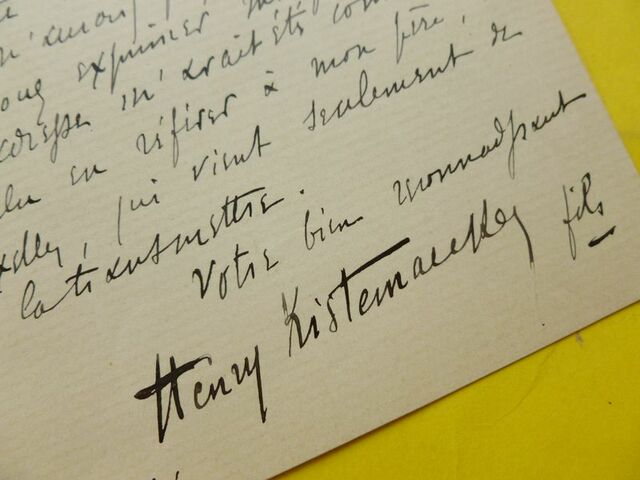 vous exprimer
adresse m'avait été
en référer à mon père,
qui vient seulement de
la transmettre.
Votre bien reconnaissant
Henry Kistemaeckers fils